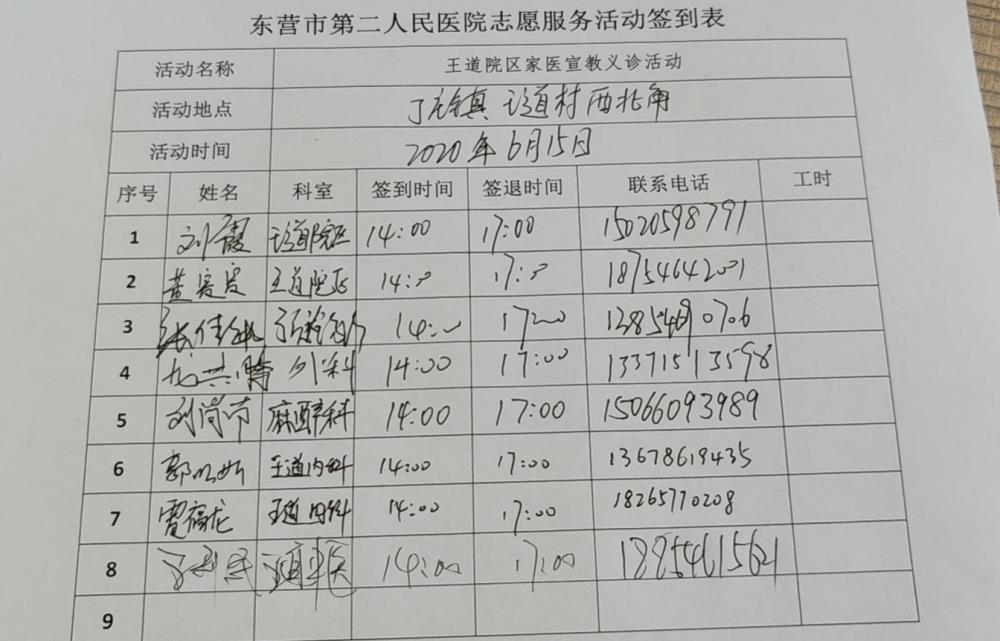 东营市第二人民医院志愿服务活动签到表
活动名称 王道院区家医宣教义诊活动
活动地点 丁庄镇 王道村西北角
活动时间 2020年6月15日
序号 姓名 科室 签到时间 签退时间 联系电话 工时
1 刘霞 王道院区 14:00 17:00 15020598791
2 王道院区 14:00 17:00 18754642001
3 14:00 17:00
4 外科 14:00 17:00 13371513598
5 刘尚市 麻醉科 14:00 17:00 15066093989
6 王道内科 14:00 17:00 13678619435
7 王道内科 14:00 17:00 18265770208
8 14:00 17:00 18854615621
9